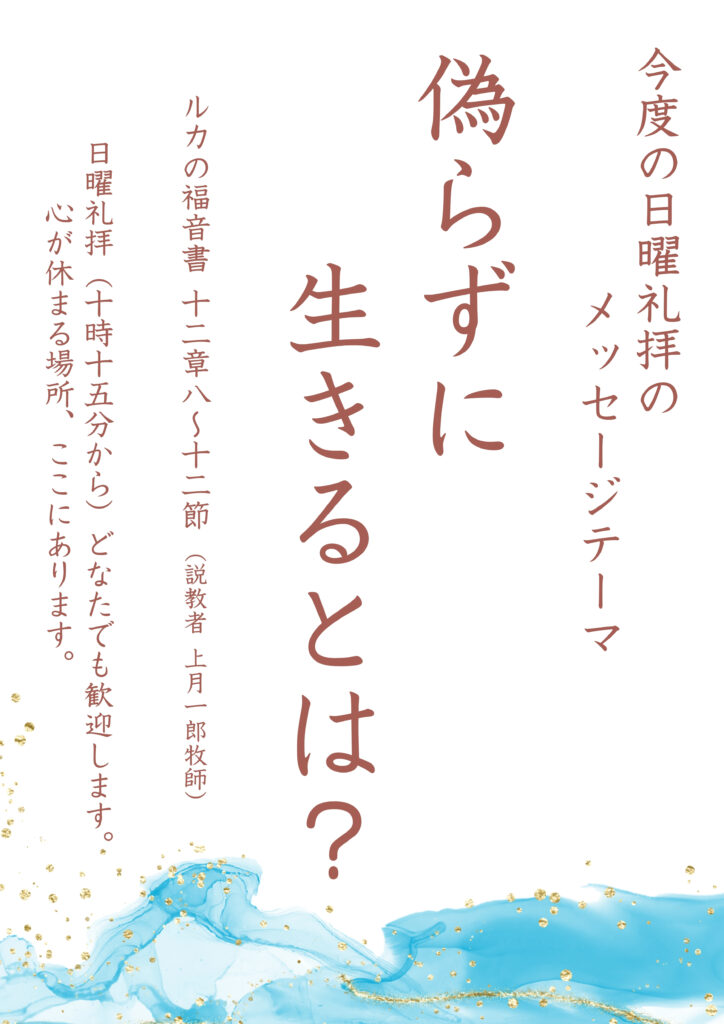 今度の日曜礼拝の
メッセージテーマ
偽らずに
生きるとは？
ルカの福音書 十二章八～十二節 （説教者 上月一郎牧師）
日曜礼拝（十時十五分から）どなたでも歓迎します。
心が休まる場所、ここにあります。